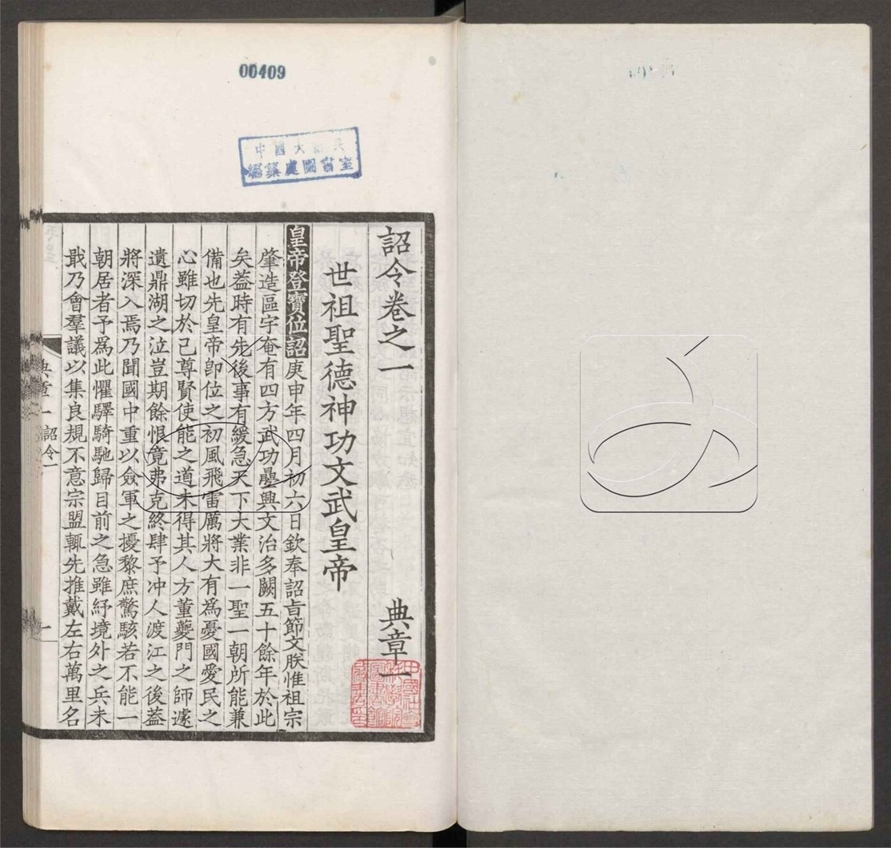 00409
詔令卷之一 典章一
世祖聖德神功文武皇帝
皇帝登寶位詔庚申年四月初六日欽奉詔旨節文朕惟祖宗
肇造區宇奄有四方武功疊興文治多闕五十餘年於此
矣蓋時有先後事有緩急天下大業非一聖一朝所能兼
備也先皇帝卽位之初風飛雷厲將大有爲憂國愛民之
心雖切於己尊賢使能之道未得其人方董夔門之師遽
遺鼎湖之泣豈期餘恨竟弗克終肆予冲人渡江之後蓋
將深入焉乃聞國中重以僉軍之擾黎庶驚駭若不能一
朝居者予爲此懼驛騎馳歸目前之急雖紓境外之兵未
戢乃會羣議以集良規不意宗盟輒先推戴左右萬里名
典章一 詔令一
一
中國大
編纂處圖書室